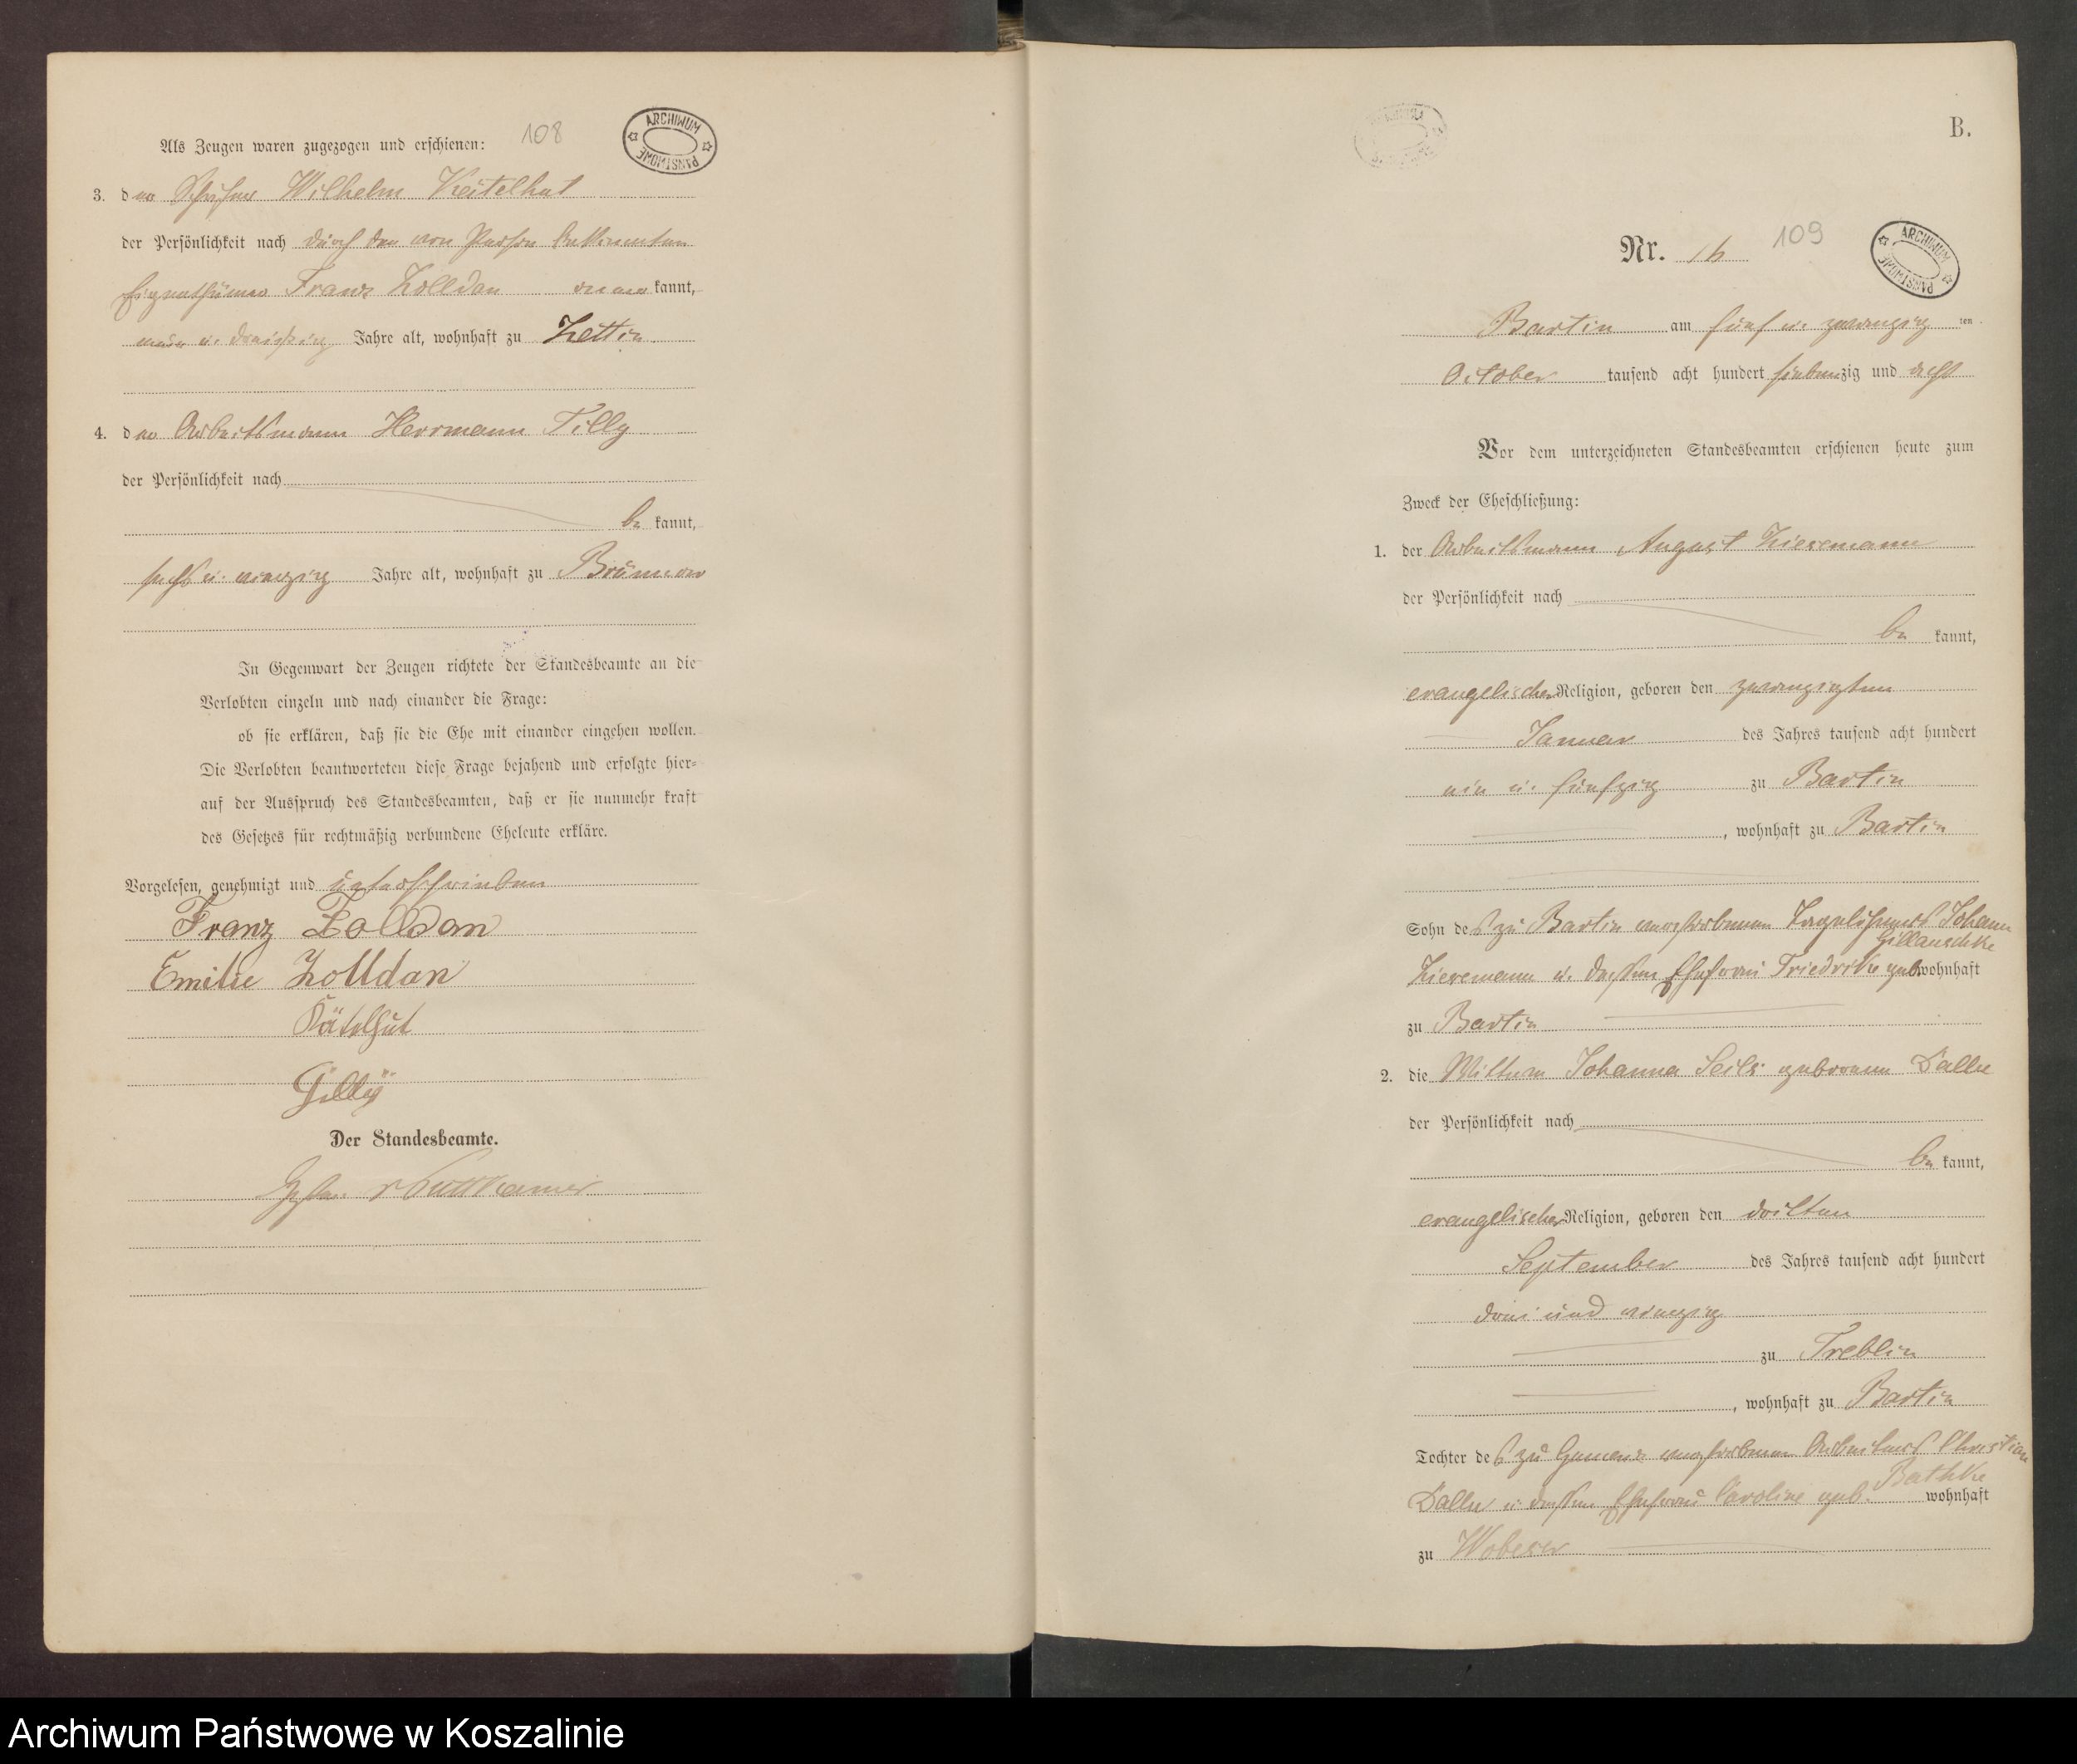 108
ARCHIWUM PAŃSTWOWE
Als Zeugen waren zugezogen und erschienen:
3. der Schäfer Wilhelm Keitelhut
der Persönlichkeit nach durch den von Person bekannten
Eigenthümer Franz Zolldan aner kannt,
neun u. dreißig Jahre alt, wohnhaft zu Zettin
4. der Arbeitsmann Herrmann Tilly
der Persönlichkeit nach
be kannt,
sechs u. vierzig Jahre alt, wohnhaft zu Brünnow
In Gegenwart der Zeugen richtete der Standesbeamte an die
Verlobten einzeln und nach einander die Frage:
ob sie erklären, daß sie die Ehe mit einander eingehen wollen.
Die Verlobten beantworteten diese Frage bejahend und erfolgte hier-
auf der Ausspruch des Standesbeamten, daß er sie nunmehr kraft
des Gesetzes für rechtmäßig verbundene Eheleute erkläre.
Vorgelesen, genehmigt und unterschrieben
Franz Zolldan
Emilie Zolldan
Kätelhut
Tilly
Der Standesbeamte.
v Puttkamer
B.
109
Nr. 16
ARCHIWUM PAŃSTWOWE
Bartin am fünf u. zwanzig ten
October tausend acht hundert siebenzig und acht
Vor dem unterzeichneten Standesbeamten erschienen heute zum
Zweck der Eheschließung:
1. der Arbeitsmann August Ziesemann
der Persönlichkeit nach
be kannt,
evangelischer Religion, geboren den zwanzigsten
Januar des Jahres tausend acht hundert
ein u. fünfzig zu Bartin
, wohnhaft zu Bartin
Sohn des zu Bartin verstorbenen Tagelöhners Johann
Gillauschke
Ziesemann u. dessen Ehefrau Friedrike geb. wohnhaft
zu Bartin
2. die Wittwe Johanna Seils geborene Dalle
der Persönlichkeit nach
be kannt,
evangelischer Religion, geboren den dritten
September des Jahres tausend acht hundert
drei und vierzig
zu Treblin
, wohnhaft zu Bartin
Tochter des zu verstorbenen Arbeiters Christian
Bathke
Dalle u. dessen Ehefrau Caroline geb. wohnhaft
zu Wobeser
Archiwum Państwowe w Koszalinie